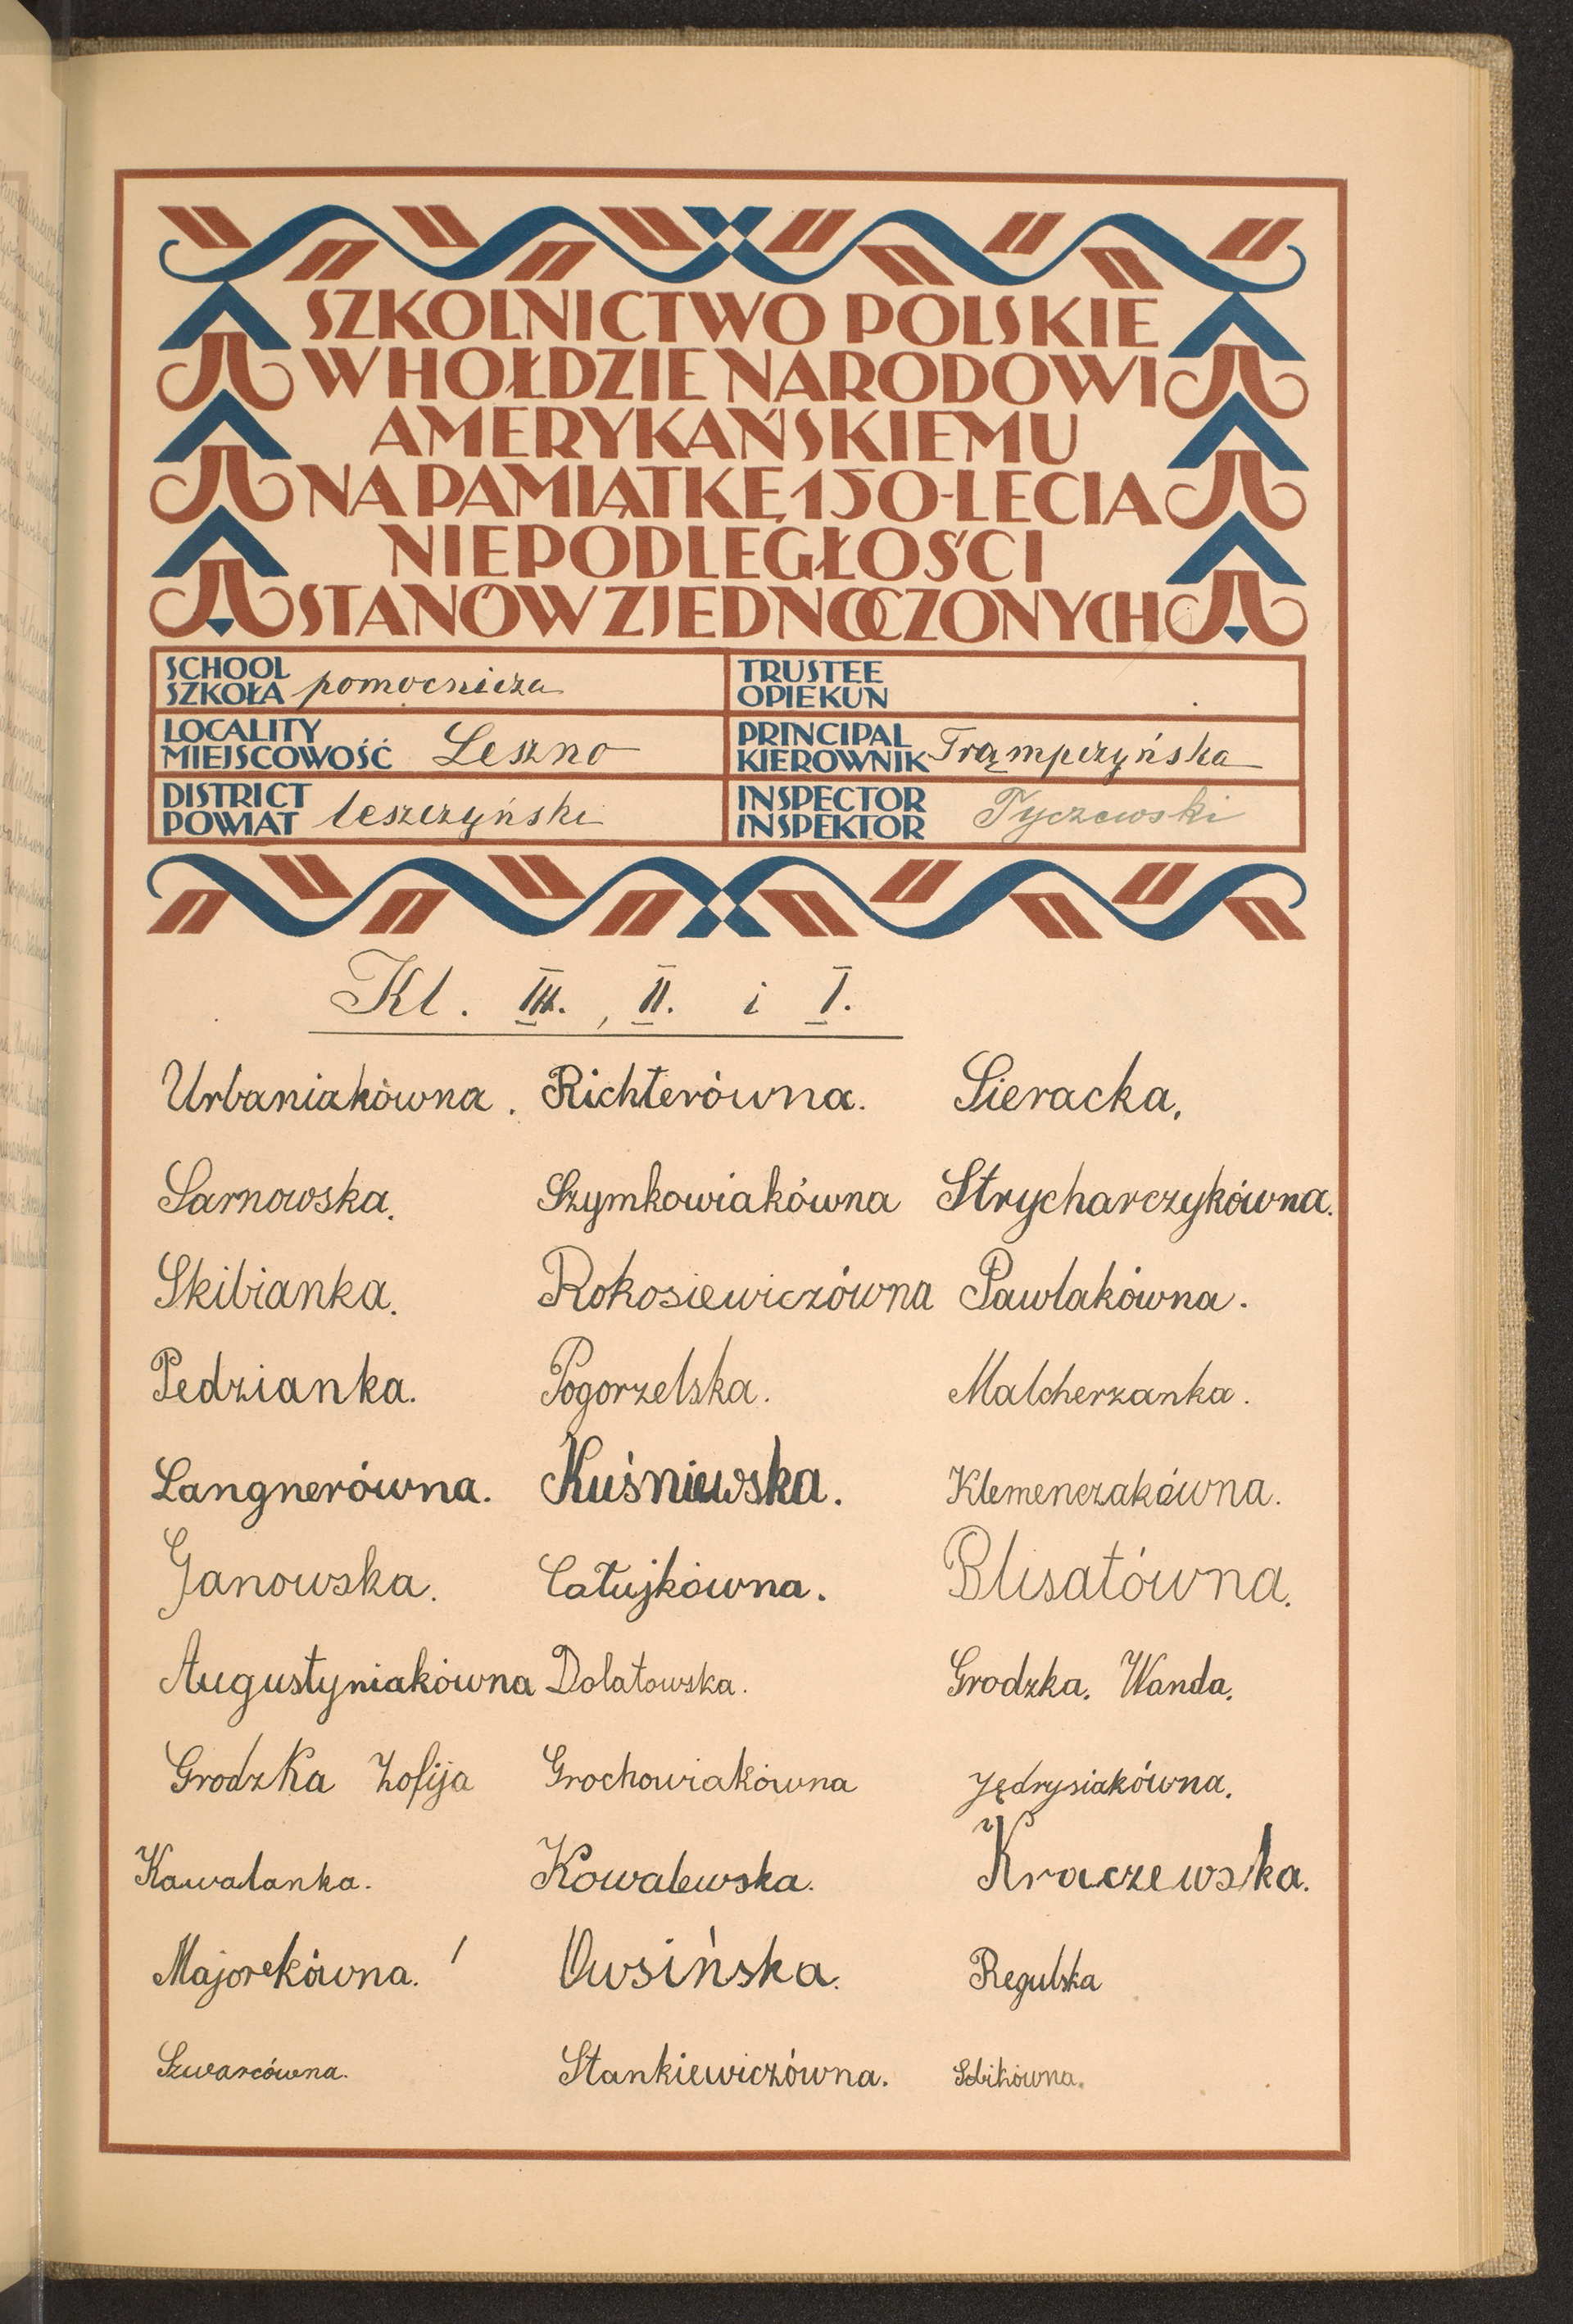 SZKOLNICTWO POLSKIE
W HOŁDZIE NARODOWI
AMERYKAŃSKIEMU
NA PAMIĄTKĘ 150-LECIA
NIEPODLEGŁOŚCI
STANÓW ZJEDNOCZONYCH
SCHOOL
SZKOŁA pomocnicza
TRUSTEE
OPIEKUN
LOCALITY
MIEJSCOWOŚĆ Leszno
PRINCIPAL
KIEROWNIK Trąmpczyńska
DISTRICT
POWIAT leszczyński
INSPECTOR
INSPEKTOR Tyczewski
Kl. III., II. i I.
Urbaniakówna. Richterówna. Sieracka.
Sarnowska. Szymkowiakówna Strycharczykówna.
Skibianka. Rokosiewiczówna Pawlakówna.
Pedzianka. Pogorzelska. Malcherzanka.
Langnerówna. Kuśniewska. Klemenczakówna.
Janowska. Całujkówna. Blisatówna.
Augustyniakówna Dolatowska. Grodzka. Wanda.
Grodzka Zofija Grochowiakówna Jędrysiakówna.
Kawalanka. Kowalewska. Kraczewska.
Majorekówna. Owsińska. Regulska
Szwarcówna. Stankiewiczówna. Sobikówna.